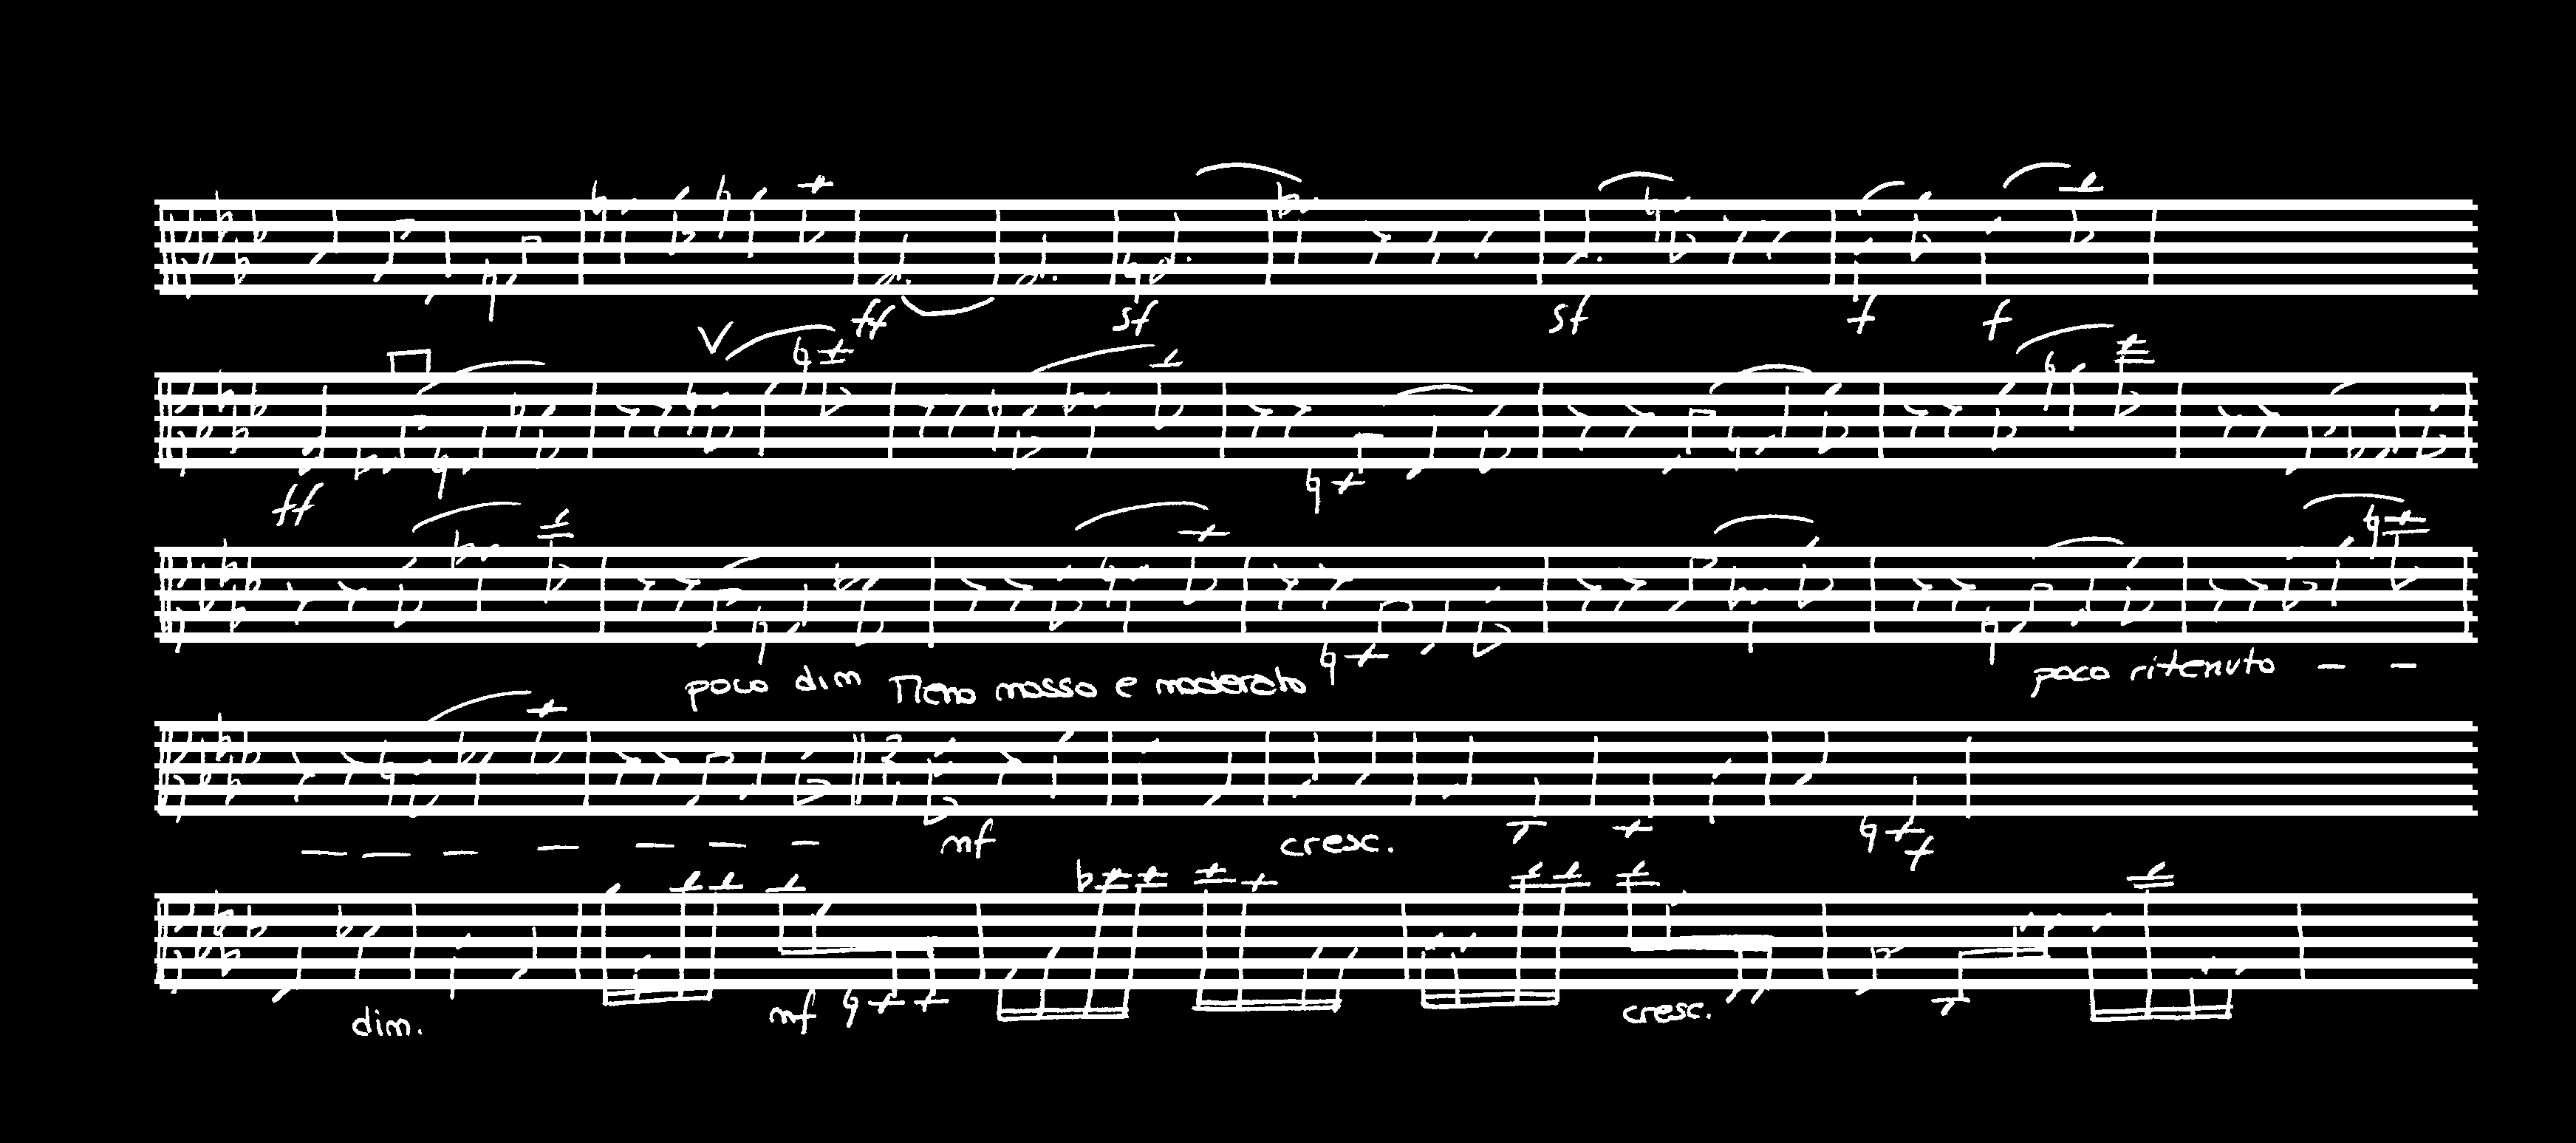 ff sf sf f f
ff
poco dim Meno mosso e moderato poco ritenuto - -
- - - - - - - mf cresc. f
dim. mf cresc.